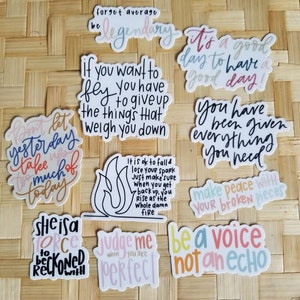 forget average
be legendary
it's a
good
day to have a
good
day!
if you want to
fly you have
to give up
the things that
weigh you down
you have
been given
everything
you need
don't let
yesterday
take up too
much of
today
it is ok to fall &
lose your spark
Just make sure
when you get
back up, you
rise as the
whole damn
fire
make peace with
your broken pieces
she is a
force
to be
reckoned
with
judge me
when you are
perfect
be a voice
not an echo